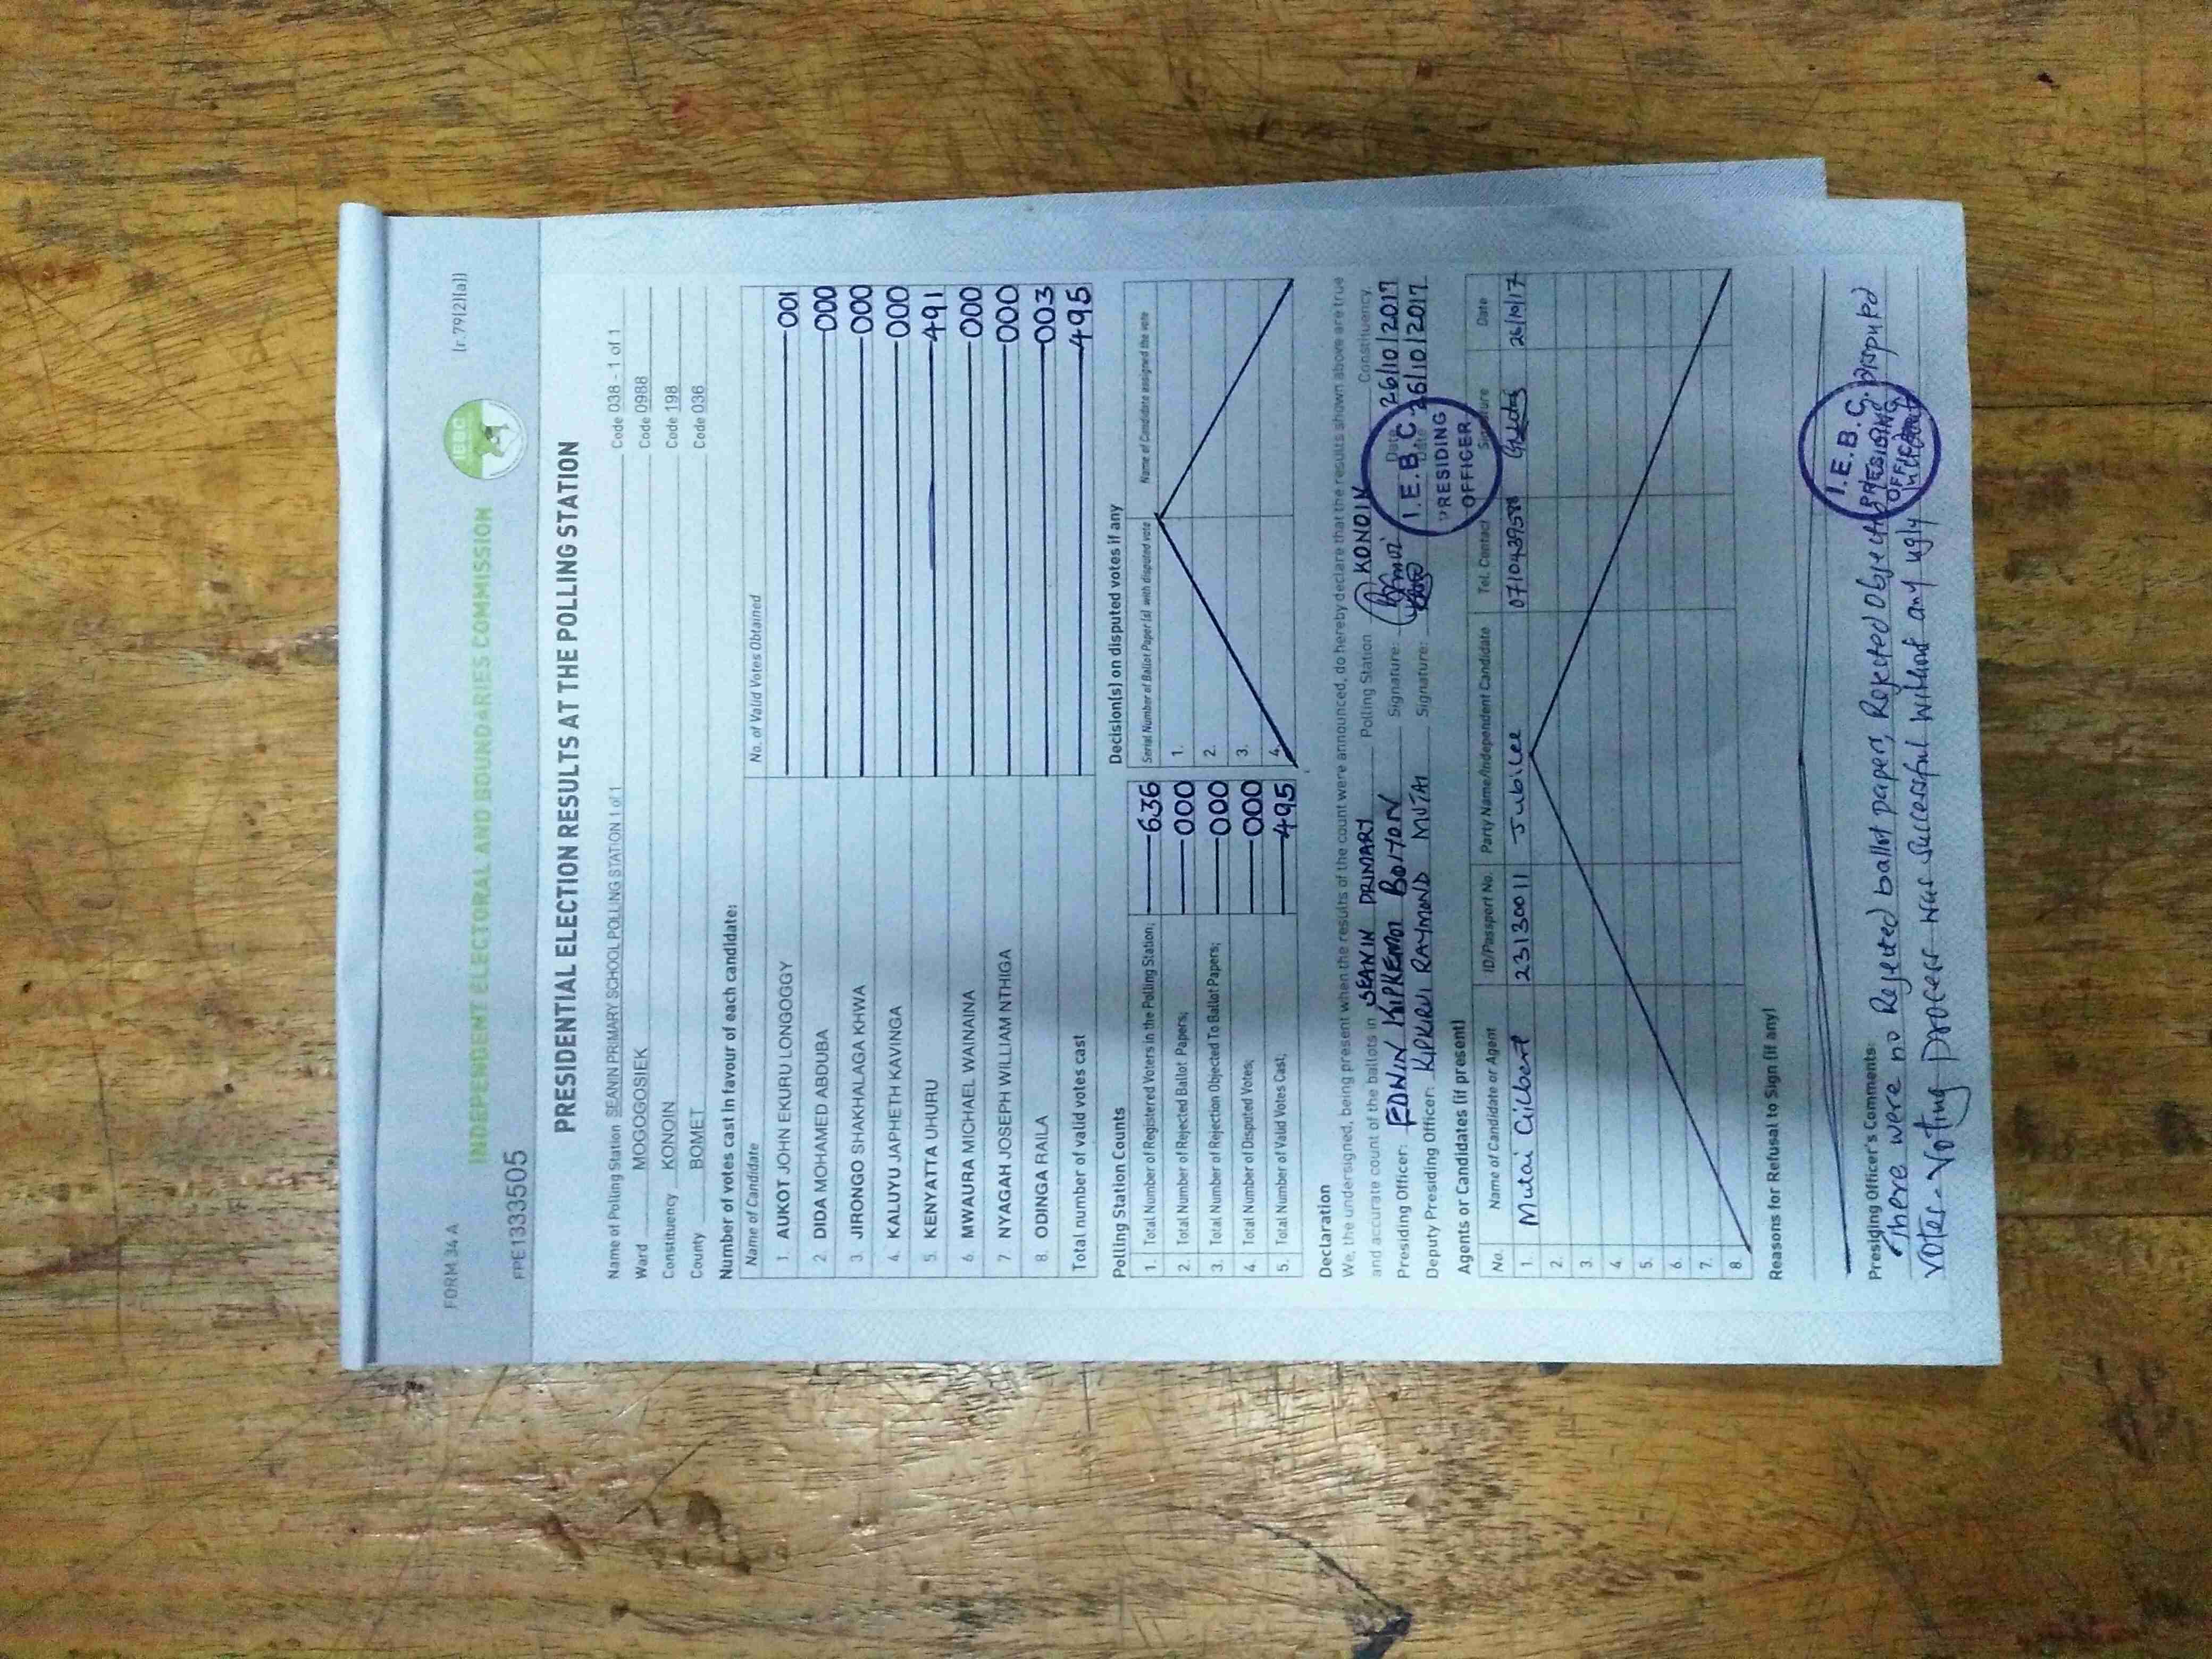 FORM 34 A
(r.79(2)(a))
INDEPENDENT ELECTORAL AND BOUNDARIES COMMISSION
IEBC
FPE1333505
PRESIDENTIAL ELECTION RESULTS AT THE POLLING STATION
Name of Polling Station SEANIN PRIMARY SCHOOL POLLING STATION 1 of 1 Code 038 - 1 of 1
Ward MOGOGOSIEK Code 0988
Constituency KONOIN Code 198
County BOMET Code 036
Number of votes cast in favour of each candidate:
Name of Candidate No. of Valid Votes Obtained
1. AUKOT JOHN EKURU LONGOGGY 001
2. DIDA MOHAMED ABDUBA 000
3. JIRONGO SHAKHALAGA KHWA 000
4. KALUYU JAPHETH KAVINGA 000
5. KENYATTA UHURU 491
6. MWAURA MICHAEL WAINAINA 000
7. NYAGAH JOSEPH WILLIAM NTHIGA 000
8. ODINGA RAILA 003
Total number of valid votes cast 495
Polling Station Counts
1. Total Number of Registered Voters in the Polling Station; 636
2. Total Number of Rejected Ballot Papers; 000
3. Total Number of Rejection Objected To Ballot Papers; 000
4. Total Number of Disputed Votes; 000
5. Total Number of Valid Votes Cast; 495
Decision(s) on disputed votes if any
Serial Number of Ballot Paper (s) with disputed vote Name of Candidate assigned the vote
1.
2.
3.
4.
Declaration
We, the undersigned, being present when the results of the count were announced, do hereby declare that the results shown above are true
and accurate count of the ballots in SEANIN PRIMARY Polling Station KONOIN Constituency.
Presiding Officer: EDWIN KIPKEMOI BOITON Signature: Date 26/10/2017
Deputy Presiding Officer: KIPKIRUI RAYMOND MUTAI Signature: Date 26/10/2017
I.E.B.C.
PRESIDING
OFFICER
Agents or Candidates (if present)
No. Name of Candidate or Agent ID/Passport No. Party Name/Independent Candidate Tel. Contact Signature Date
1. Mutai Gilbert 23130011 Jubilee 0710439588 26/10/17
2.
3.
4.
5.
6.
7.
8.
Reasons for Refusal to Sign (if any)
Presiding Officer's Comments:
There were no Rejected ballot papers, Rejected Objected Disputed
votes. Voting process was successful without any ugly
I.E.B.C.
PRESIDING
OFFICER